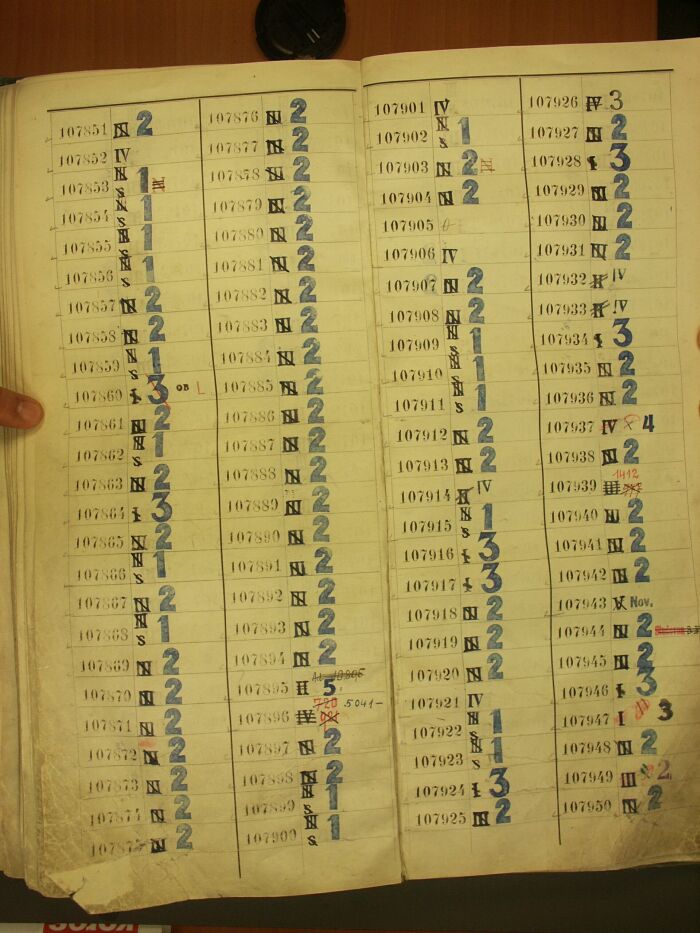 107851 N 2
107852 IV
107853 N S 1
107854 N S 1
107855 N S 1
107856 N S 1
107857 N 2
107858 N 2
107859 N S 1
107860 I 3 OB L
107861 N 2
107862 N S 1
107863 N 2
107864 I 3
107865 N 2
107866 N S 1
107867 N 2
107868 N S 1
107869 N 2
107870 N 2
107871 N 2
107872 N 2
107873 N 2
107874 N 2
107875 N 2
107876 N 2
107877 N 2
107878 N 2
107879 N 2
107880 N 2
107881 N 2
107882 N 2
107883 N 2
107884 N 2
107885 N 2
107886 N 2
107887 N 2
107888 N 2
107889 N 2
107890 N 2
107891 N 2
107892 N 2
107893 N 2
107894 N 2
107895 II 5
107896 IV 720 5041-
107897 N 2
107898 N 2
107899 N S 1
107900 N S 1
107901 IV
107902 N S 1
107903 N 2
107904 N 2
107905
107906 IV
107907 N 2
107908 N 2
107909 N S 1
107910 N S 1
107911 N S 1
107912 N 2
107913 N 2
107914 N IV
107915 N S 1
107916 I 3
107917 I 3
107918 N 2
107919 N 2
107920 N 2
107921 IV
107922 N S 1
107923 N S 1
107924 I 3
107925 N 2
107926 IV 3
107927 N 2
107928 I 3
107929 N 2
107930 N 2
107931 N 2
107932 II IV
107933 II IV
107934 I 3
107935 N 2
107936 N 2
107937 IV 4
107938 N 2
107939 III 1412
107940 N 2
107941 N 2
107942 N 2
107943 V Nov.
107944 N 2
107945 N 2
107946 I 3
107947 I 3
107948 N 2
107949 III 2
107950 N 2